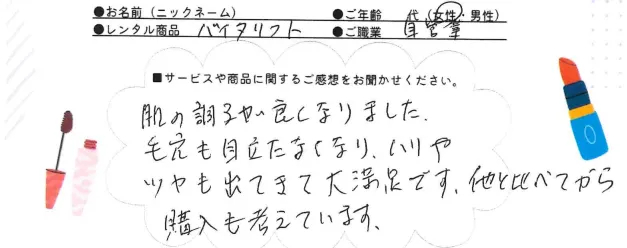 ●お名前（ニックネーム） ●ご年齢 代（女性・男性）
●レンタル商品 バイタリフト ●ご職業 自営業
■サービスや商品に関するご感想をお聞かせください。
肌の調子が良くなりました。
毛穴も目立たなくなり、ハリや
ツヤも出てきて大満足です。他と比べてから
購入も考えています。